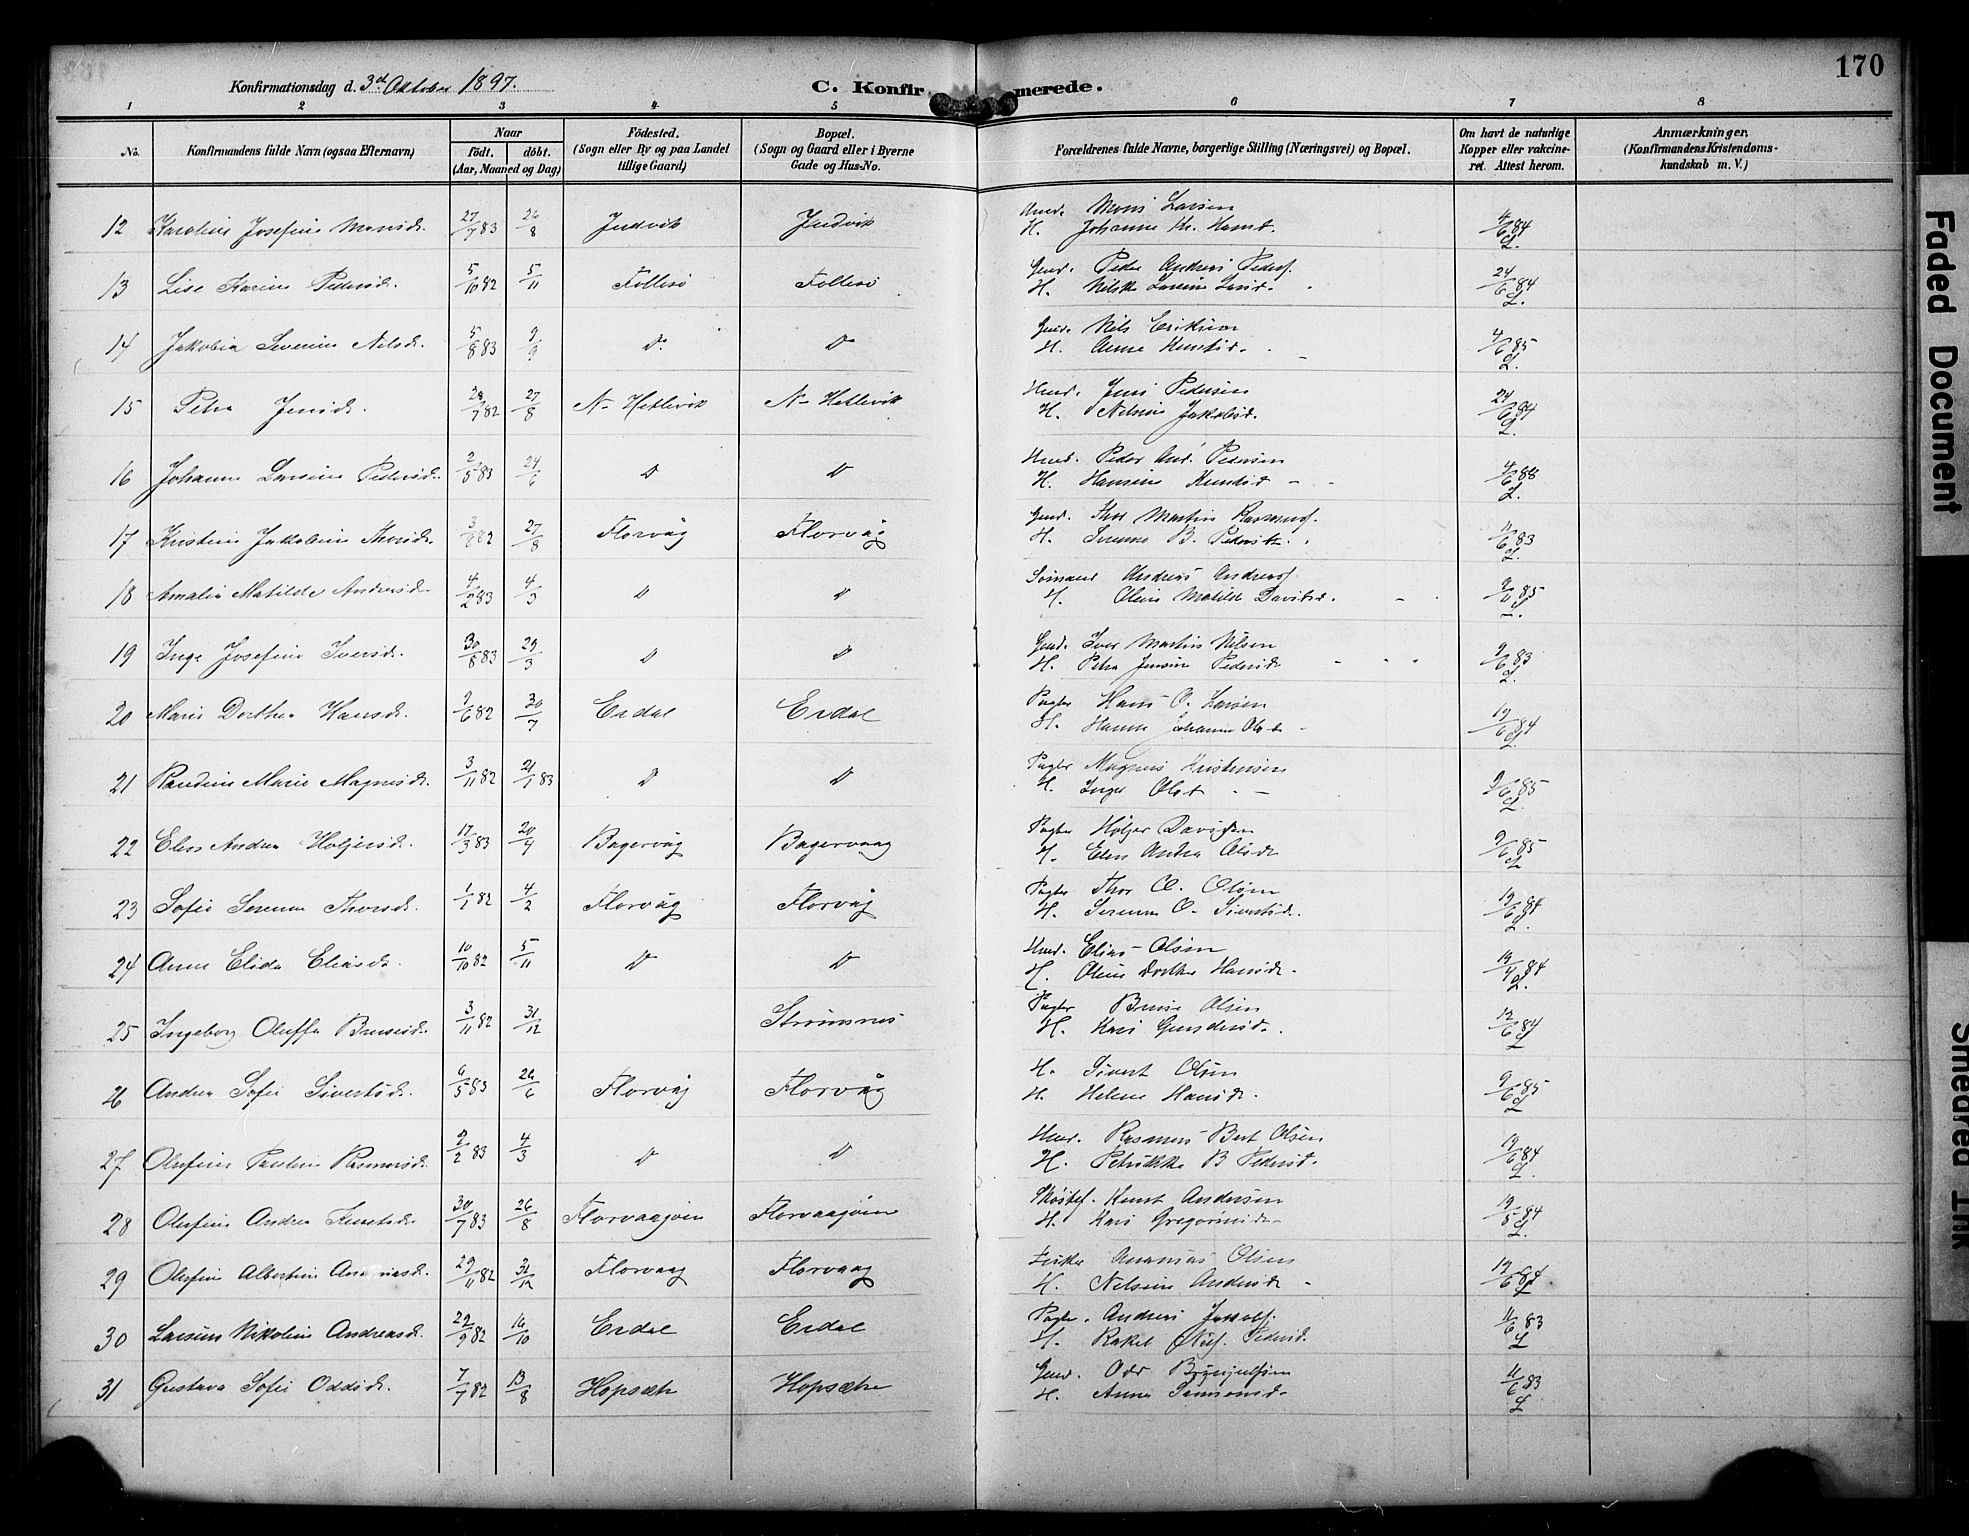 170
Konfirmationsdag d. 3d Oktober 1897.
C. Konfirmerede.
1 2 3 4 5 6 7 8
No.
Konfirmandens fulde Navn (ogsaa Efternavn)
Naar
födt. döbt.
(Aar, Maaned og Dag)
Födested.
(Sogn eller By og paa Landet
tillige Gaard)
Bopæl.
(Sogn og Gaard eller i Byerne
Gade og Hus-No.
Forældrenes fulde Navne, borgerlige Stilling (Næringsvei) og Bopæl.
Om havt de naturlige
Kopper eller vakcine-
ret. Attest herom.
Anmærkninger.
(Konfirmandens Kristendoms-
kundskab m. V.)
12 Karoline Josefine Monsd. 27/7 83 26/8 Juvik Juvik Mons Larsen 4/6 84
H. Johanne L.
13 Lise Karine Pedersd. 5/10 82 5/11 Follesö Follesö Gmd. Peder Andreas Peders. 24/6 84
H. Nilske L.
14 Jakobia Severine Nilsd. 5/8 83 9/9 Do Do Gmd. Nils Eriksen 4/6 85
H. Anne Knutsd. L.
15 Petra Jensd. 7 82 27/8 N- Hetlevik N- Hetlevik Hmd. Jens Pedersen 24/6 84
H. Nilsine Jakobsd. L.
16 Johanne Larsine Pedersd. 2/5 83 24/6 D D Hmd. Peder And. Pedersen 4/6 88
H. Hansine Knutsd. L.
17 Kristine Jakobine Thorsd. 3 82 27/8 Florvåg Florvåg Gmd. Thor Martin Rasmus. 11/6 83
H. Serenne B. Pedersd. L.
18 Amalia Matilde Andersd. 4/2 83 4/3 D D Sömand Andreas Andreas. 9/11 85
H. Oline Matilde Davidsd. L.
19 Inga Josefine Iversd. 30/8 83 29/3 D D Gmd. Iver Martin Nilsen 9/6 83
H. Petra Jensine Pedersd. L.
20 Maria Dorthea Hansd. 7/6 82 30/7 Erdal Erdal Pagter Hans O. Larsen 19/6 84
H. Hanne Johanne Olsd. L.
21 Randine Marie Magnesd. 3/11 82 21/1 83 D D Pagter Magnus Kristensen 9/6 85
H. Inger Olsd. L.
22 Elen Andrea Holjersd. 17/3 83 20/4 Bagervåg Bagervaag Pagter Holjer Davidsen 9/6 85
H. Elen Andrea Olsd. L
23 Sofie Serenna Thorsd. 1/1 82 4/2 Florvåg Florvåg Pagter Thor O. Olsen 19/6 84
H. Serenna O. Sivertsd. L.
24 Anna Elida Eliasd. 10/10 82 5/11 D D Hmd. Elias Olsen 19/4 84
H. Oline Dorthea Hansd. L.
25 Ingeborg Oluffa Brunsd. 3/11 82 31/12 Strömsnes Pagter Olsen 12/6 84
H. Kari Gundersd. L
26 Andrea Sofie Sivertsd. 6/5 83 24/6 Florvåg Florvåg H. Sivert Olsen 9/6 85
H. Helene Hansd. L
27 Olufine Pauline Rasmusd. 2/2 83 4/3 D D Hmd. Rasmus Bert Olsen 19/6 84
H. Petrikke B Pedersd. L
28 Olufine Andrea Knutsd. 30/7 83 26/8 Florvaagöen Florvaagöen Knut Andersen 19/5 84
H. Kari Gregoriusd. L
29 Olufine Albertine Ananiasd. 29/11 82 31/12 Florvaag Florvaag Fisker Ananias Olsen 19/6 84
H. Nelsine Andersd. L
30 Larsine Nikoline Andreasd. 22/9 82 16/10 Erdal Erdal Pagter. Andreas Jakobs. 11/6 83
H. Rakel Oluf. Pedersd. L
31 Gustava Sofie Oddsd. 7/7 82 13/8 Hopsæter Hopsæter Gmd. Odd 11/6 83
H. Anna Simonsd. L
Faded Document
Smeared Ink